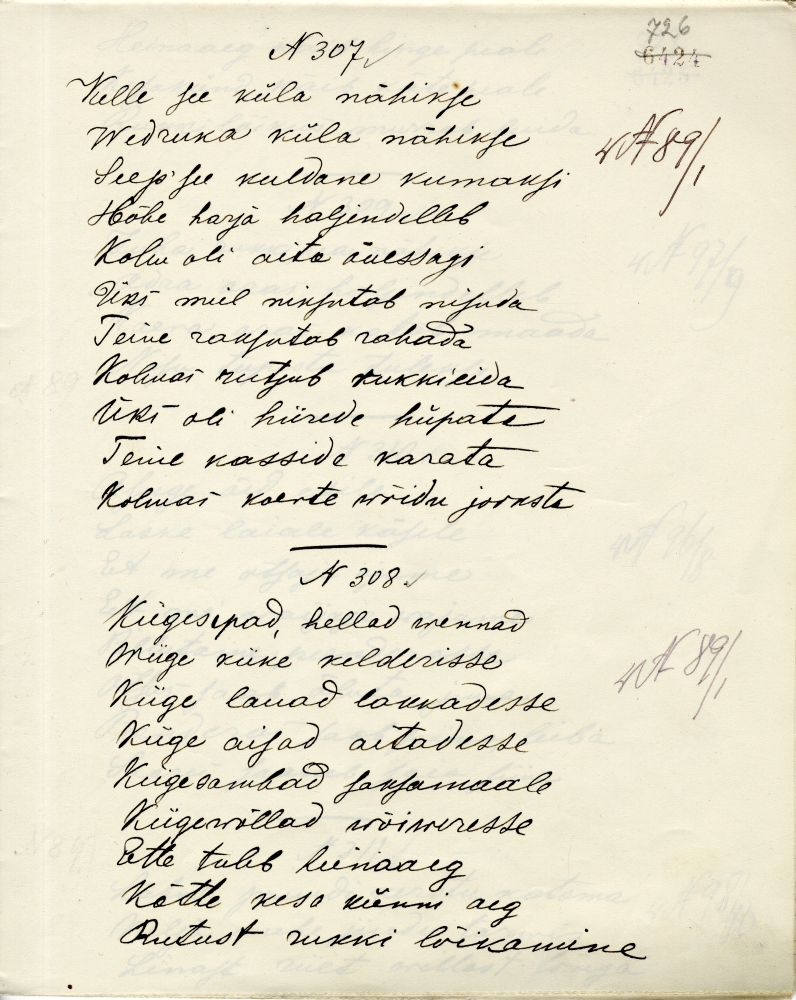 726
6424
N 307.
Kelle see küla nähikse
Wedruka küla nähikse
Seep see kuldane kumaksi
Hõbe harja haljendelleb
Kolm oli aita õuessagi
Üks meil niksutab nisuda
Teine raksutab rahada
Kolmas rutjub rukkieida
Üks oli hiirede hüpata
Teine kasside karata
Kolmas koerte wõidu joosta
N 89/1
N 308.
Kiigesepad, hellad wennad
Wiige kiike kelderisse
Kiige lauad lakkadesse
Kiige aisad aitadesse
Kiigesambad saksamaale
Kiigewõllad wõiweresse
Ette tuleb leinaaeg
Kätte kesa künni aeg
Rutust rukki lõikamine
N 89/1